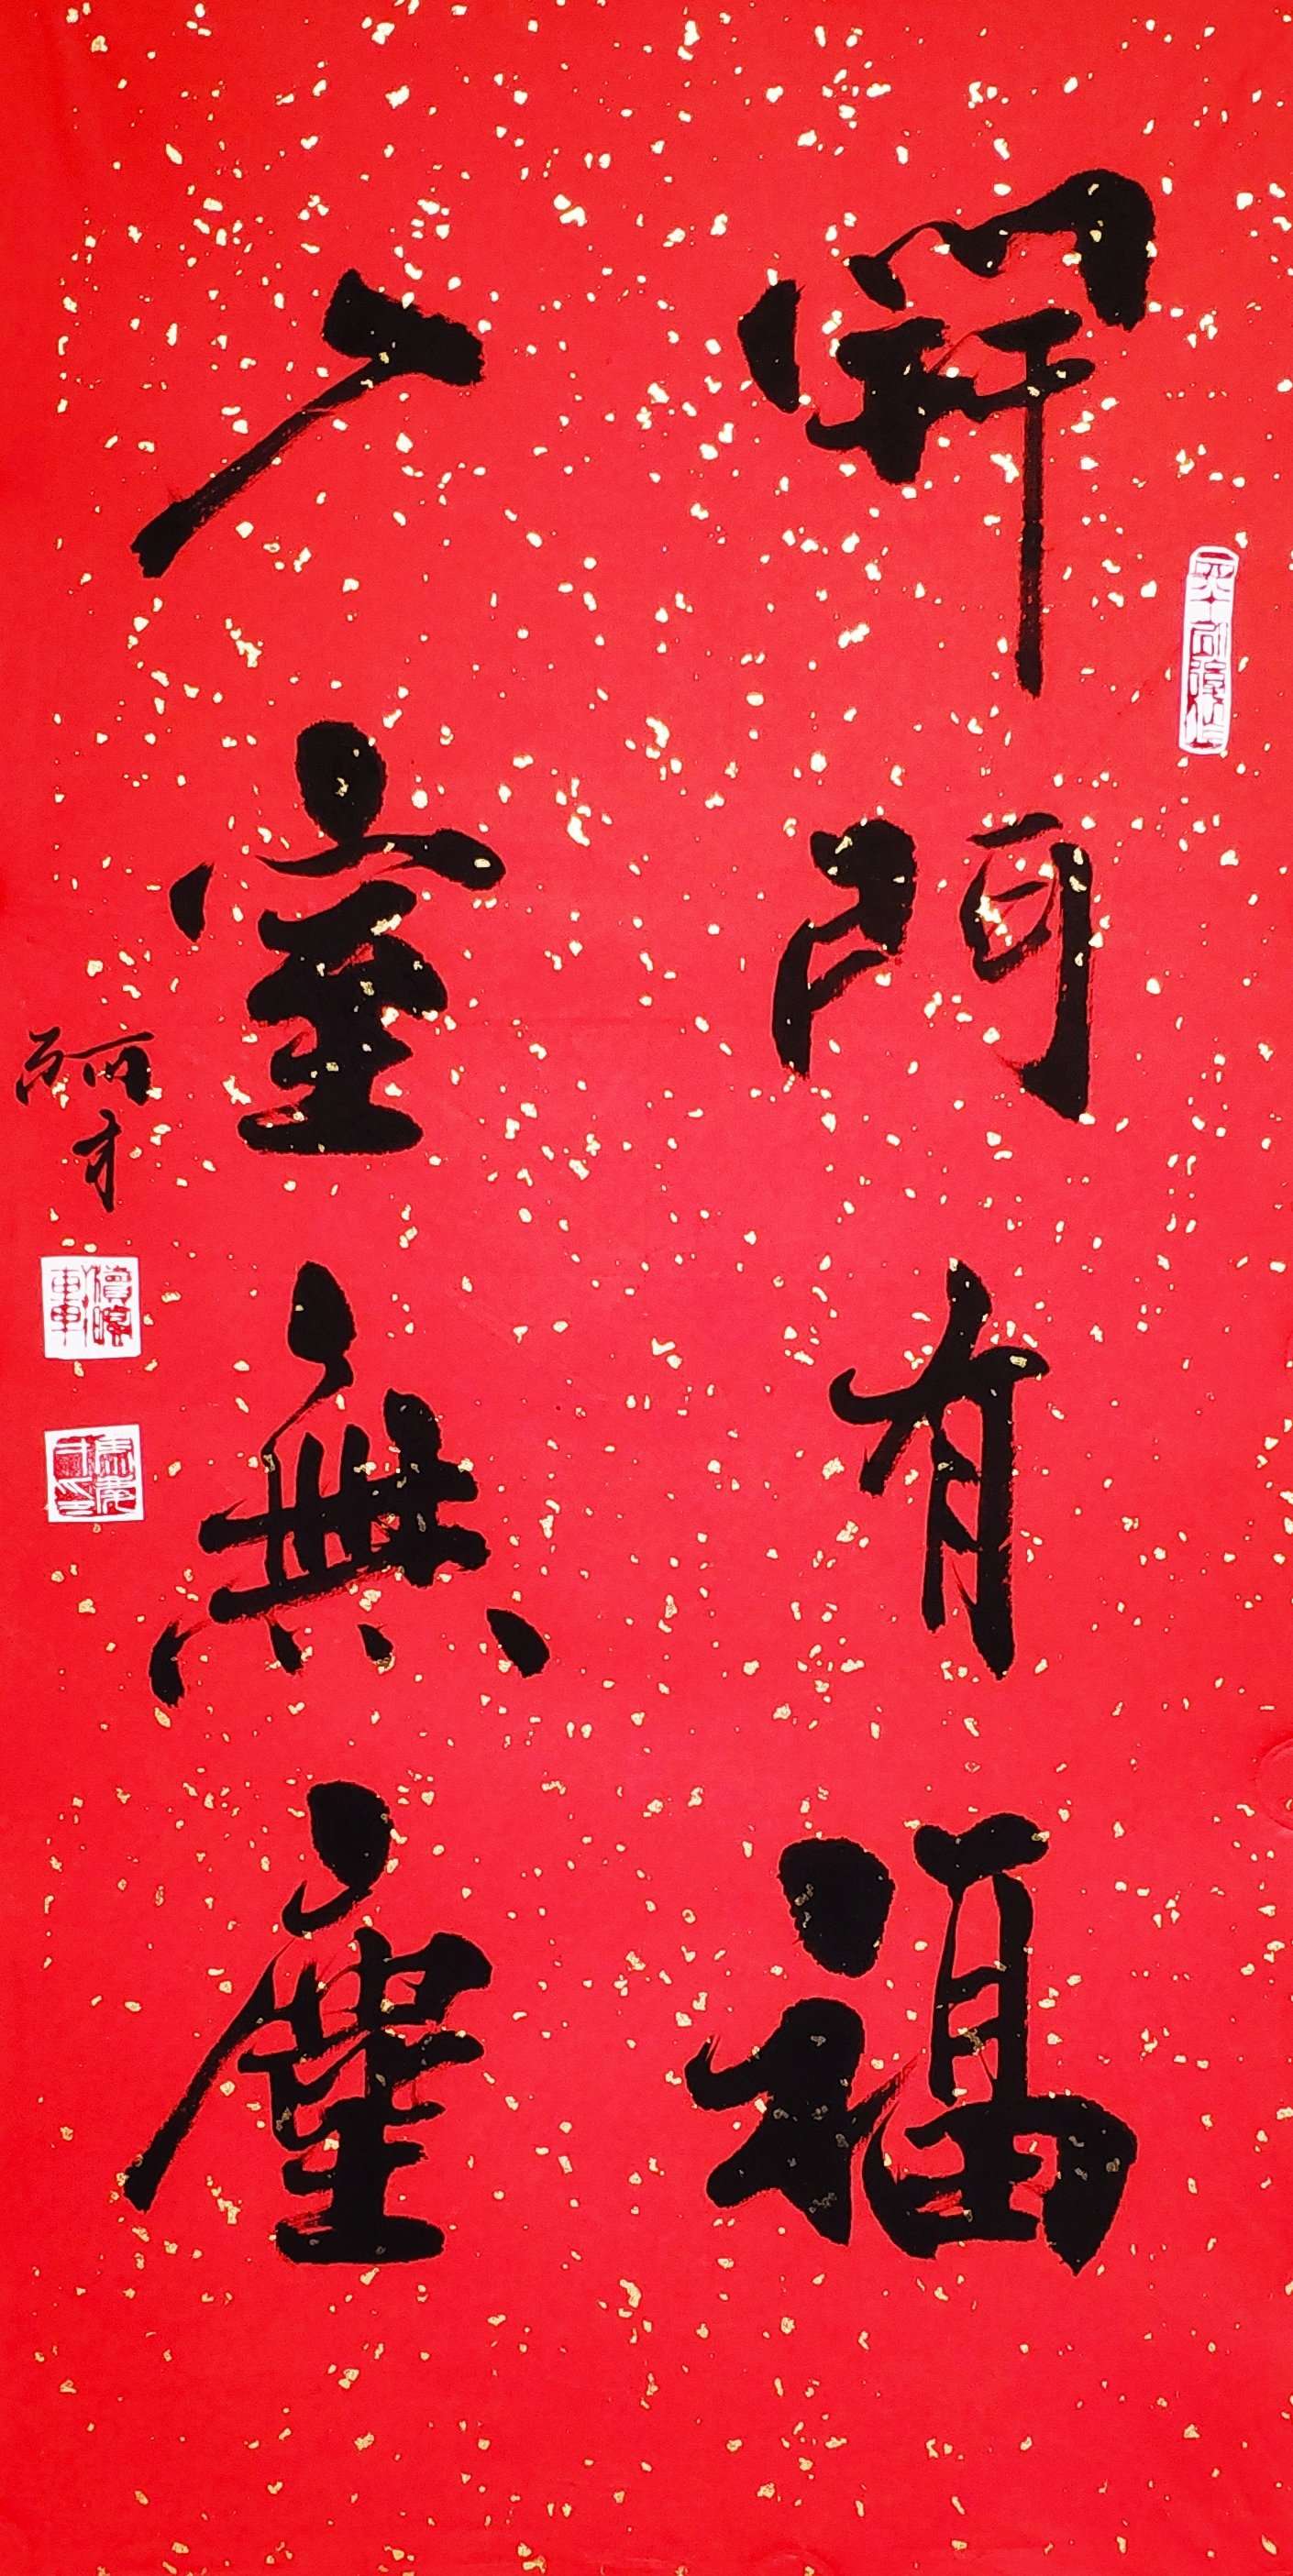 開門有福
入室無塵